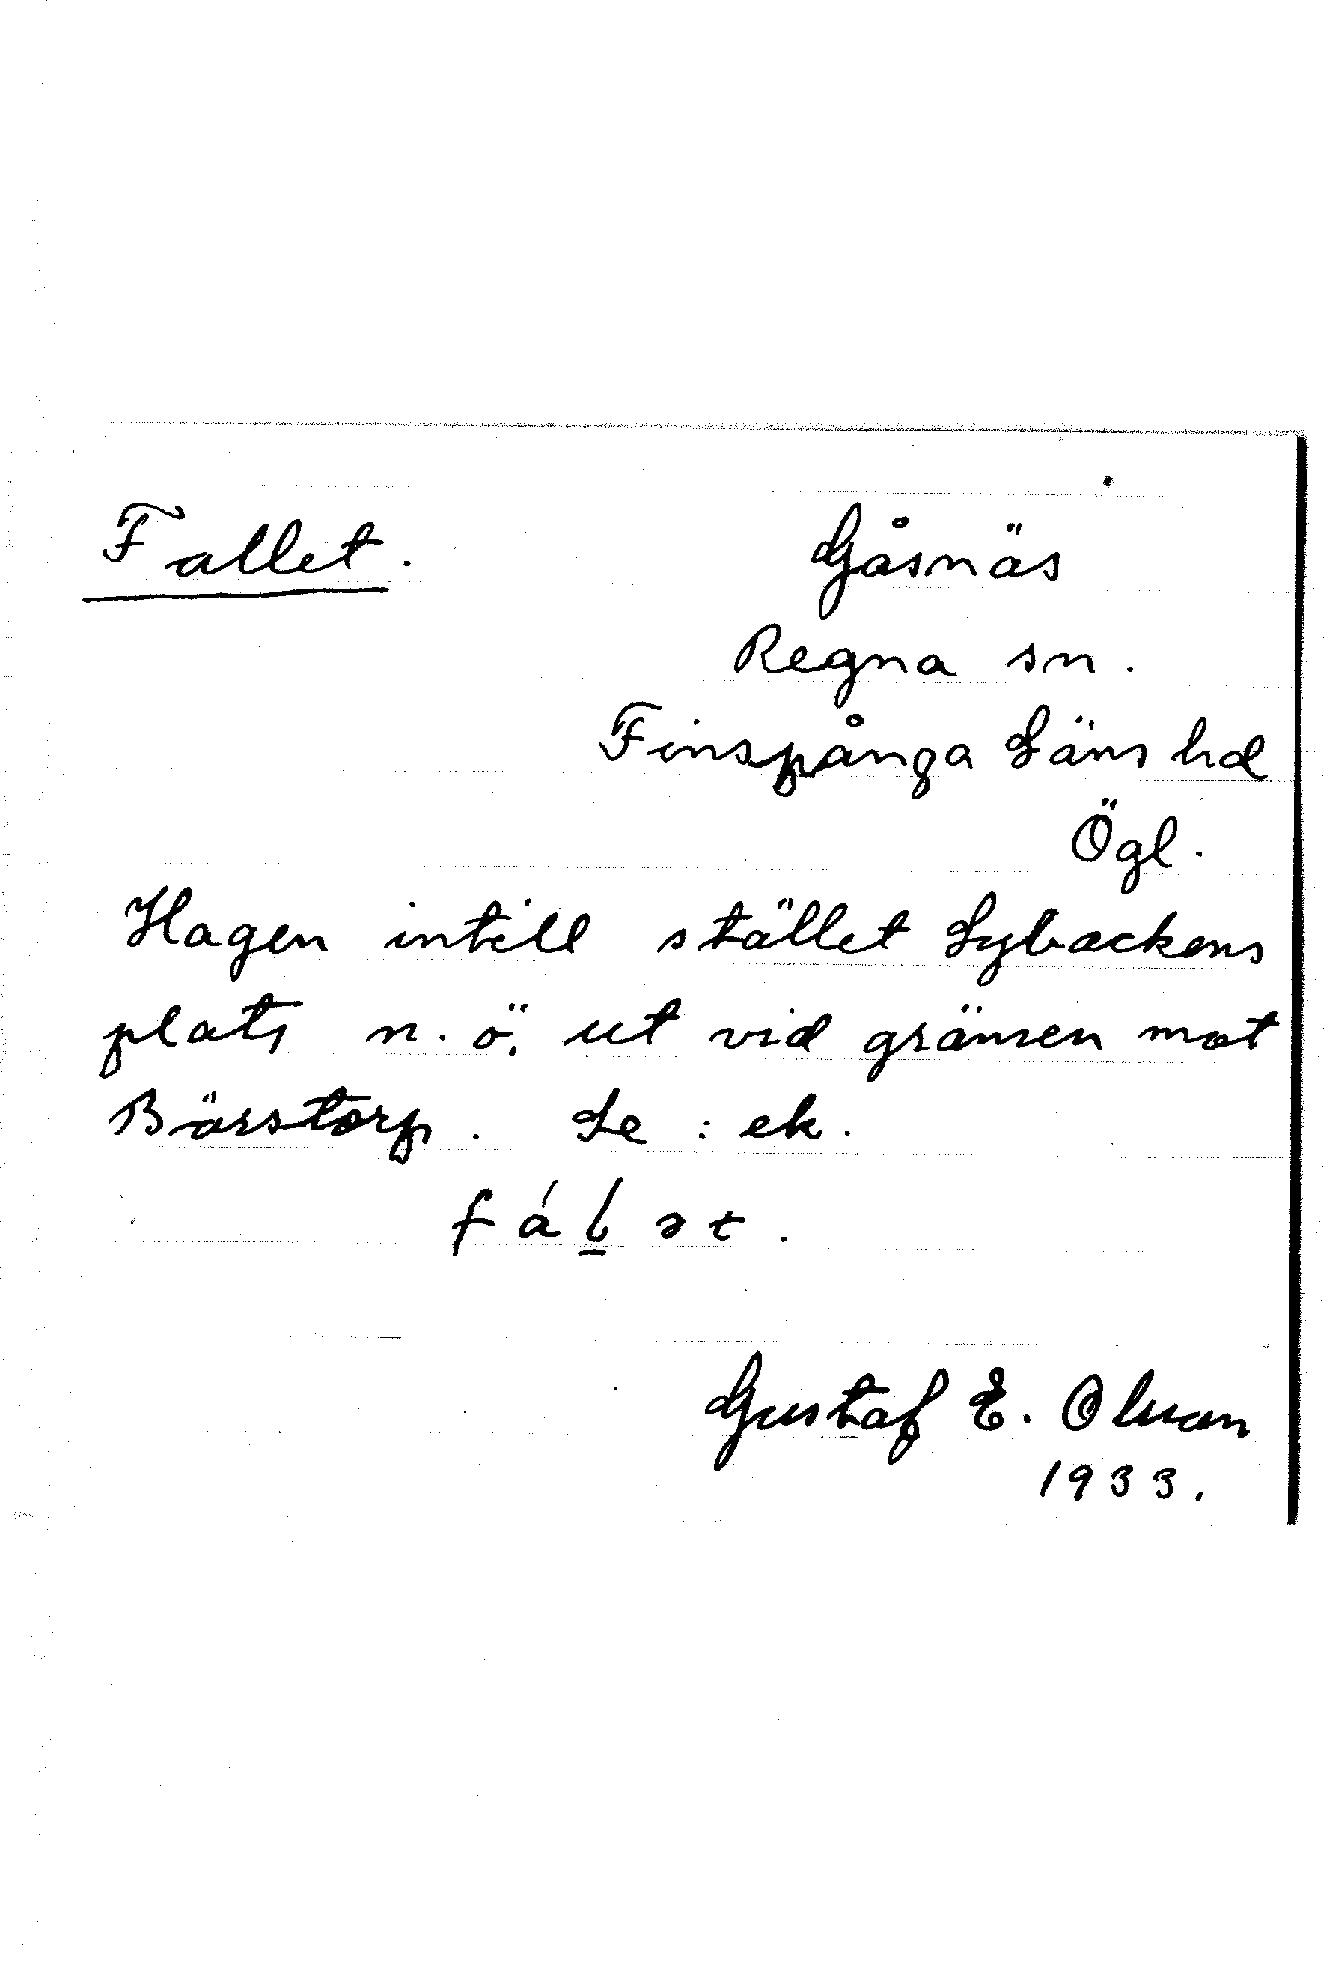 Fallet.
Gåsnäs
Regna sn.
Finspånga Läns hd
Ögl.
Hagen intill stället Lybackens
plats n. ö. ut vid gränsen mot
Börstorp. Le : ek.
fál̲ət.
Gustaf E. Olsson
1933.